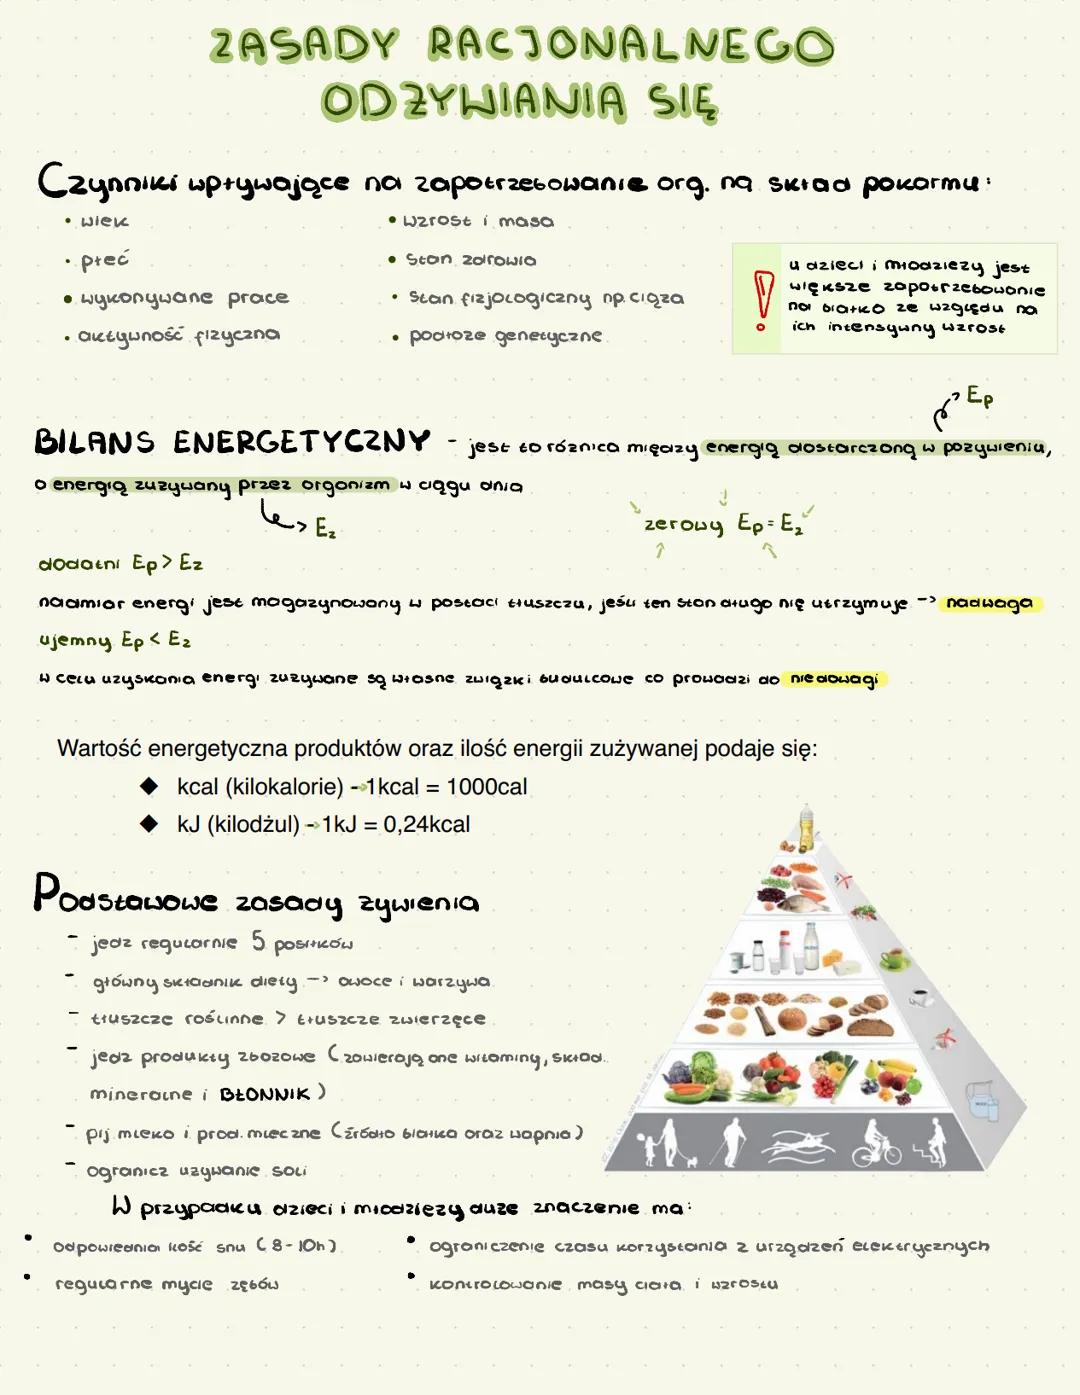 ZASADY RACJONALNEGO
ODŻYWIANIA SIĘ
Czynniki wpływające na zapotrzebowanie org. na skład pokarmu:
• wiek
• wzrost i masa
• płeć
• stan zdrowia
• wykonywane prace
• stan fizjologiczny np. ciąża
• aktywność fizyczna
• podłoże genetyczne
u dzieci i młodzieży jest
większe zapotrzebowanie
na białko ze względu na
ich intensywny wzrost
Ep
BILANS ENERGETYCZNY - jest to różnica między energią dostarczoną w pożywieniu,
a energią zużywaną przez organizm w ciągu dnia
Ez
zerowy Ep = Ez
dodatni Ep > Ez
nadmiar energi jest magazynowany w postaci tłuszczu, jeśli ten stan długo się utrzymuje -> nadwaga
ujemny Ep < Ez
w celu uzyskania energi zużywane są własne związki budulcowe co prowadzi do niedowagi
Wartość energetyczna produktów oraz ilość energii zużywanej podaje się:
◆ kcal (kilokalorie) → 1kcal = 1000cal
◆ kJ (kilodżul) → 1kJ = 0,24kcal
Podstawowe zasady żywienia
- jedz regularnie 5 posiłków
- główny składnik diety -> owoce i warzywa
- tłuszcze roślinne > tłuszcze zwierzęce
- jedz produkty zbożowe (zawierają one witaminy, skład.
mineralne i BŁONNIK)
- pij mleko i prod. mleczne (źródło białka oraz wapnia)
- ogranicz używanie soli
W przypadku dzieci i młodzieży duże znaczenie ma:
• odpowiednia ilość snu (8-10h)
• ograniczenie czasu korzystania z urządzeń elektrycznych
• regularne mycie zębów
• kontrolowanie masy ciała i wzrostu